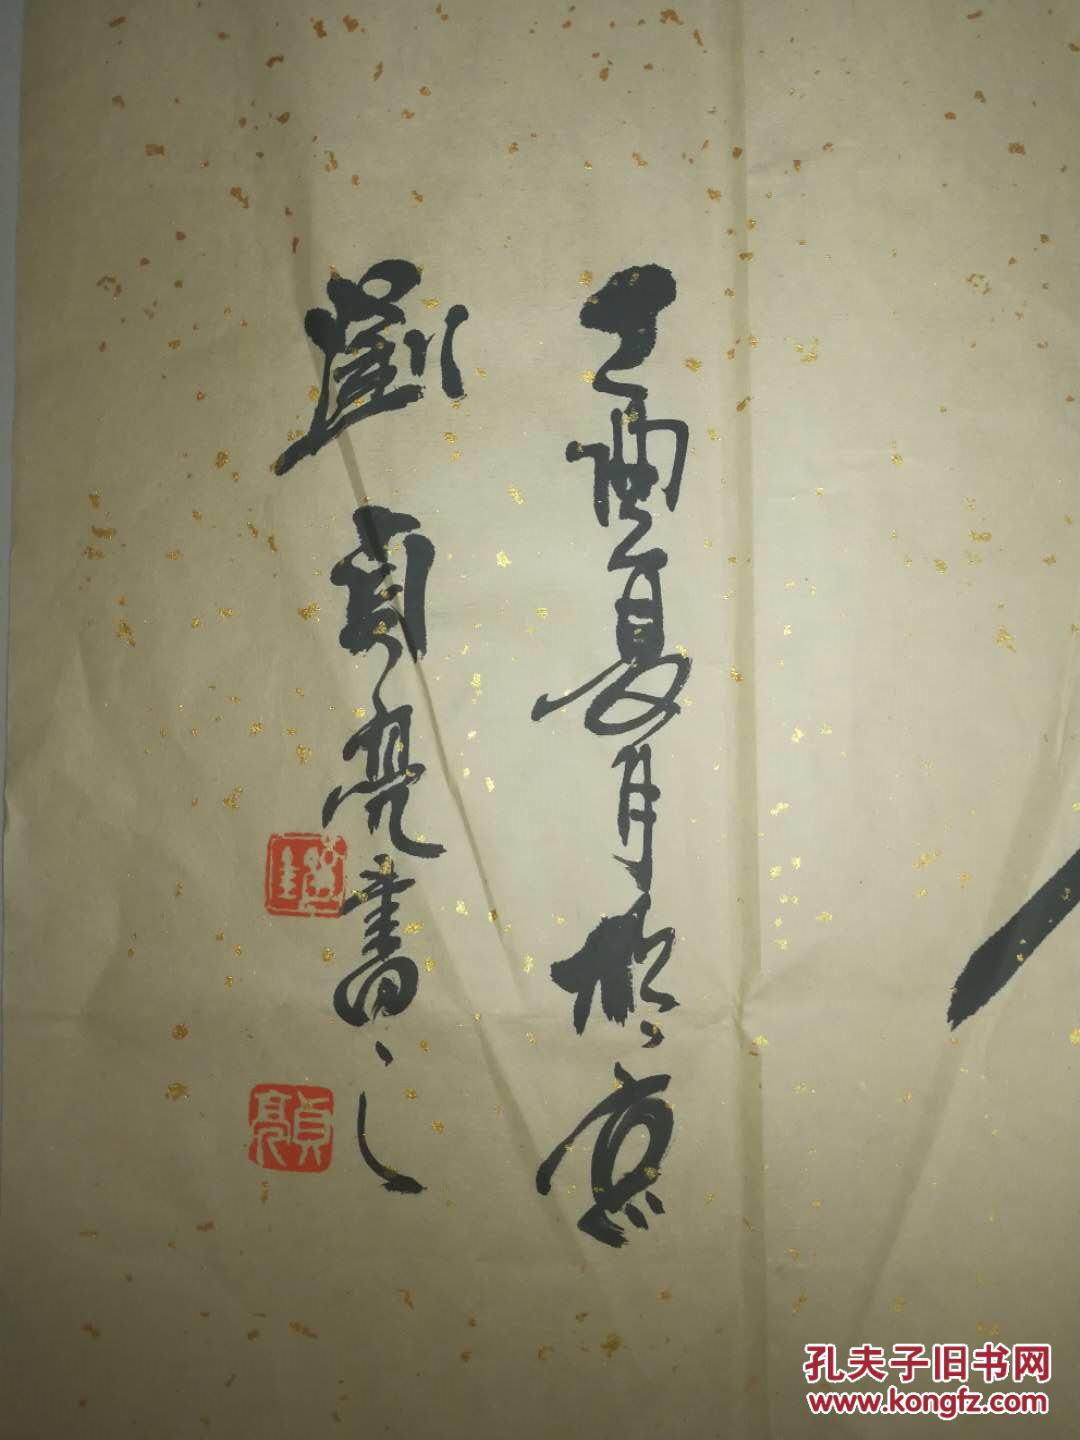 丁酉夏月於京
劉貞亮書之
貞亮
孔夫子旧书网
www.kongfz.com